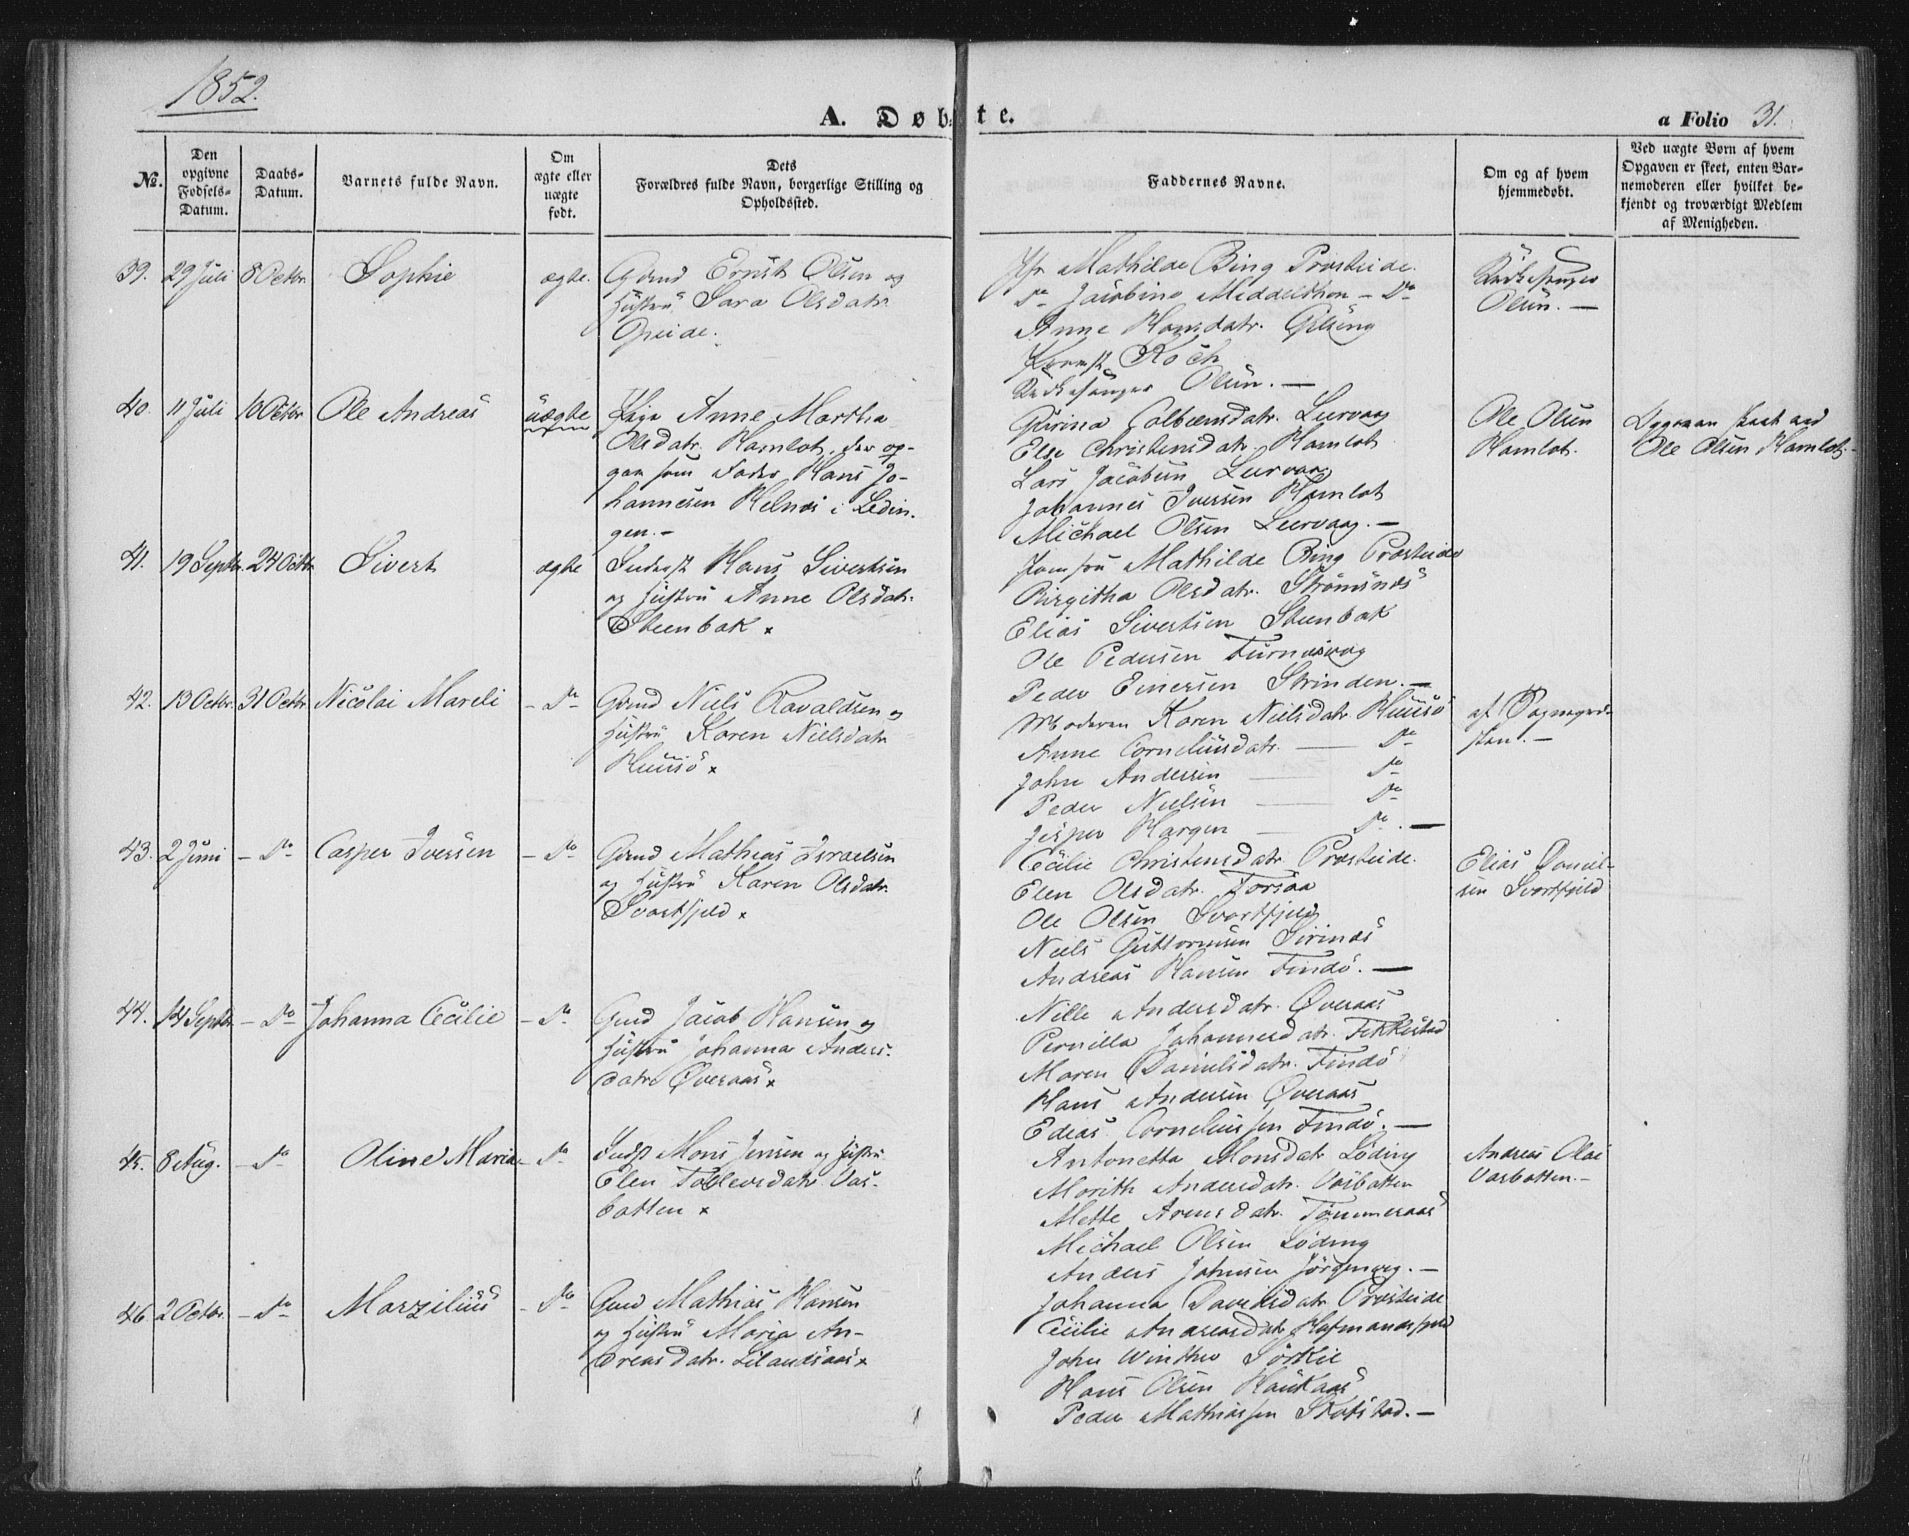 1852.
A. Døbte.
a Folio 31.
No.
Den opgivne Fødsels-Datum.
Daabs-Datum.
Barnets fulde Navn.
Om ægte eller uægte født.
Dets Forældres fulde Navn, borgerlige Stilling og Opholdssted.
Faddernes Navne.
Om og af hvem hjemmedøbt.
Ved uægte Børn af hvem Opgaven er skeet, enten Barnemoderen eller hvilket bekjendt og troværdigt Medlem af Menigheden.
39. 29 Juli 8 Octbr. Sophie ægte. Gdmd Ernst Olsen og
Hustru Sara Olsdatr.
Opeide.
Jfr Mathilde Bing Præsteide.
Do Jacobine Middelthon - Do
Anne Hansdatr.
Koch
Kirkesanger Olsen. —
Kirkesanger
Olsen. —
40. 11 Juli 10 Octbr Ole Andreas uægte Pige Anne Martha
Olsdatr. Hamlot, der op-
gav som Fader Hans Jo-
hannesen i Lødin-
gen. -
Colbensdatr. Leervaag
Else Christensdatr. Hamlot
Lars Jacobsen Leervaag
Johannes Iversen Hamlot
Michael Olsen Leervaag. —
Ole Olsen
Hamlot.
Opgaven skeet ved
Ole Olsen Hamlot. -
41. 19 Septbr. 24 Octbr Sivert ægte Hans Sivertsen
og Hustru Anne Olsdatr.
Steenbak x
Jomfru Mathilde Bing Præsteide
Birgitha Olsdatr. Strömsnæs
Elias Sivertsen Steenbak
Ole Pedersen
Peder Einersen Strinden. —
42. 13 Octbr. 31 Octbr Nicolai Mareli - Do - Gdmd Niels Ravaldsen og
Hustru Karen Nielsdatr
Huusö x
Moderen Karen Nielsdatr Huusö
Anne Corneliusdatr. — Do
John Andersen — Do
Peder Nielsen — Do
Jesper Hargen — Do. —
af Sognepre-
sten. —
43. 2 Juni - Do - Casper Iversen - Do - Gdmd Mathias Israelsen
og Hustru Karen Olsdatr.
Svartfjeld x
Cecilie Christensdatr. Præsteide.
Elen Olsdatr. Forsaa
Ole Olsen Svartfjeld
Niels Guttormsen
Andreas Hansen Findö. —
Elias Daniel-
sen Svartfjeld
44. 14 Septbr - Do - Johanna Cecilie - Do - Gmd Jacob Hansen og
Hustru Johanna Anders-
datr. Øveraas x
Nille Andersdatr. Øveraas
Pernilla Johannesdatr.
Maren Danielsdatr. Findö
Hans Andersen Øveraas
Edias Corneliussen Findö. —
45. 8 Aug. - Do - Oline Maria - Do - Indst Mons Jensen og Hustru
Elen Tollevsdatr. Vas-
botten x
Antonetta Monsdatr Löding
Marith Andersdatr. Vasbotten
Mette Arensdatr. Tømmeraas
Michael Olsen Löding
Anders Johnsen Jörgenvog. —
Andreas Olai
Vasbotten. -
46. 2 Octbr. - Do - Marzelius - Do - Gmd Mathias Hansen
og Hustru Maria An-
dreasdatr. Lilandsaas x
Johanna Davidsdatr. Præsteide
Cecilie Andreasdatr.
John Winther Sörkil
Hans Olsen Haukaas
Peder Mathiassen Skotstad. —